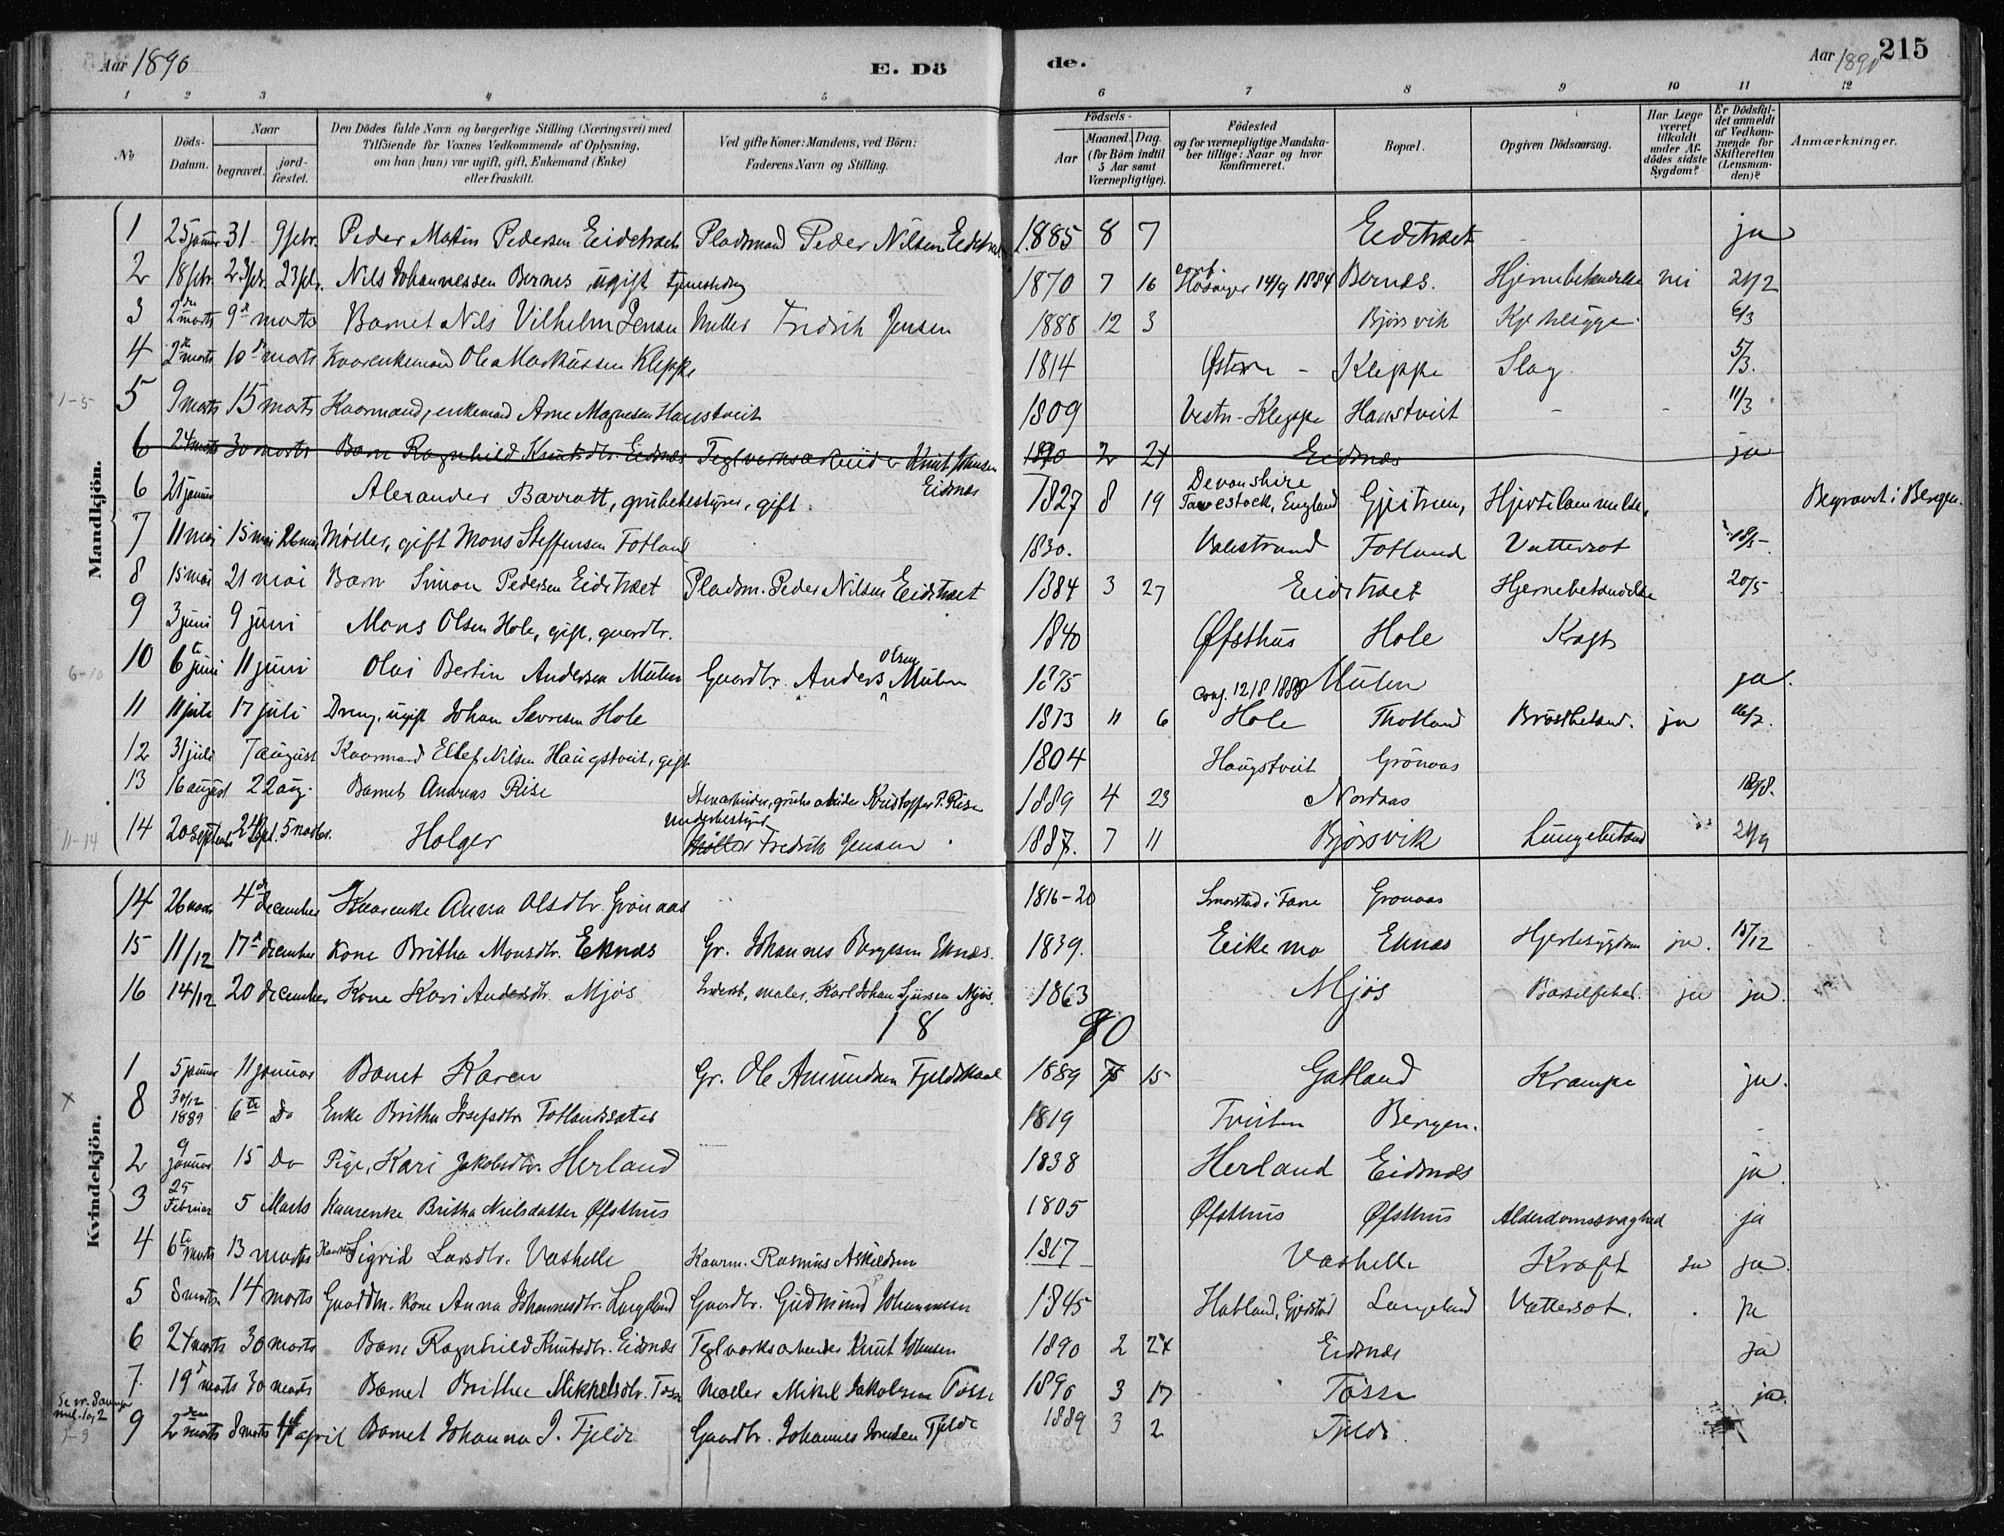 Aar 1890 E. Dö de. Aar 1890 215
1 2 3 4 5 6 7 8 9 10 11 12
No. Döds-Datum. Naar begravet. jord-fæstet. Den Dödes fulde Navn og borgerlige Stilling (Næringsvei) med Tilföiende for Voxnes Vedkommende af Oplysning, om han (hun) var ugift, gift, Enkemand (Enke) eller fraskilt. Ved gifte Koner: Mandens, ved Börn: Faderens Navn og Stilling. Födsels- Aar Maaned. Dag. (for Börn indtil 5 Aar samt Værnepligtige). Födested og for værnepligtige Mandskaber tillige: Naar og hvor konfirmeret. Bopæl. Opgiven Dödsaarsag. Har Læge været tilkaldt under Afdödes sidste Sygdom? Er Dödsfaldet anmeldt af Vedkommende for Skifteretten (Lensmanden)? Anmærkninger.
Mandkjön.
1 25 januar 31 9 febr. Peder Martin Pedersen Eidetræet Pladsmand Peder Nilsen Eidetræet 1885 8 7 Eidetræet ja
2 18 febr. 23 febr. 23 febr. Nils Johannessen Bernes, ugift 1870 7 16 conf. Hosanger 14/9 1884 Bernes. Hjernebetændelse nei 24/2
3 2den marts 9d marts Barnet Nils Vilhelm Jensen Møller Fredrik Jensen 1888 12 3 Bjørsvik 6/3
4 2den marts 10d marts Kaarenkemand Ole Markussen Kleppe 1814 Østern - Kleppe Slag 5/3.
1-5 5 9 marts 15 marts Kaarmand, enkemand Arne Magnesen Haugstveit 1809 Vestn-Kleppe Haustveit - - 11/3
6 24 marts 30 marts Barn Ragnhild Knutsdtr. Eidsnes Teglverksarbeider Knut Johnsen Eidsnes 1890 2 24 Eidsnes ja
6 21 januar Alexander Barratt, grubebestyrer, gift. 1827 8 19 Devonshire Tavestock, England Hjertelammelse. Begravet i Bergen.
7 11 mai 15 mai 26 mai Møller, gift Mons Steffensen Fotland 1830. Balestrand Fotland Vattersot 18/5.
8 15 mai 21 mai Barn Simon Pedersen Eidetræet Pladsm. Peder Nilsen Eidetræet 1884 3 27 Eidetræet Hjernebetændelse 20/5
9 3 juni 9 juni Mons Olsen Hole, gift, gaardbr. 1840 Øfsthus Hole
6-10 10 6te juni 11 juni Olai Bertin Andersen Mulen Gaardbr. Anders Olsen Mulen 1875 Mulen ja.
11 11 juli 17 juli Dreng, ugift Johan Sevresen Hole 1873 11 6 conf. 12/8 1888 Hole Brystbetænd. ja 16/7.
12 31 juli 7 august Kaarmand Ellef Nilsen Haugstveit, gift 1804 Haugstveit Grönaas
13 16 august 22 aug. Barnet Andreas Rise Stenarbeider, grubearbeider Kristoffer P. Rise 1889 4 23 Nordaas 18/8.
11-14 14 20 septemb. 24 Sept. 5 novbr. Holger Underbestyrer Møller Fredrik Jensen 1887. 7 11 Bjørsvik Lungebetænd 24/9
Kvindekjön.
14 26 novb 4de december Kaarenke Anna Olsdtr. Grönaas 1816-20 Smorstad i Fane Grönaas
15 11/12 17d december Kone Britha Monsdtr. Eknæs Gr. Johannes Børgesen Eknæs. 1839. Eikemo Eknæs Hjertesygdom ja. 15/12
16 14/12 20 december Kone Kari Andersdtr. Mjøs Inderst, maler, Karl Johan Mjøs. 1863 Mjøs Barselfeber. ja ja.
18 90
1 5 januar 11 januar Barnet Karen Gr. Ole Amundsen Fjeldskaal 1889 15 Gatland Krampe ja.
x 8 30/12 1889 6te Do Enke Britha Josefsdtr. Fotlandssæter 1819 Tveiten Bergen.
2 9 januar 15 Do Pige, Kari Jakobsdtr. Herland 1838 Herland Eidsnes ja.
3 25 Februar 5 Marts Kaarenke Britha Neilsdatter Øfsthus 1805 Øfsthus Øfsthus Alderdomssvaghed ja
4 6te marts 13 marts Sigrid Larsdtr. Vashelle Kaarm. Rasmus Askildsen 1817 Vashelle Kræft ja ja.
5 8 marts 14 marts Gaardm. kone Anna Johannesdtr. Langeland Gaardbr. Gudmund Johannesen 1845 Hatland, Gjerstad Langeland Vattersot. ja
6 24 marts 30 marts Barn Ragnhild Knutsdtr. Eidsnes Teglverksarbeider Knut Johnsen 1890 2 24 Eidsnes ja
7. 19d marts 30 marts Barnet Brithe Mikkelsdtr. Tosse Møller Mikel Jakobsen Tosse 1890 3 17 Tosse ja.
Se nr. 8 ovenfor mel. 1 og 2
7-9 9 2den marts 8 marts april Barnet Johanna J. Fjelde Gaardbr. Johannes Fjelde 1889 3 2 Fjelde.